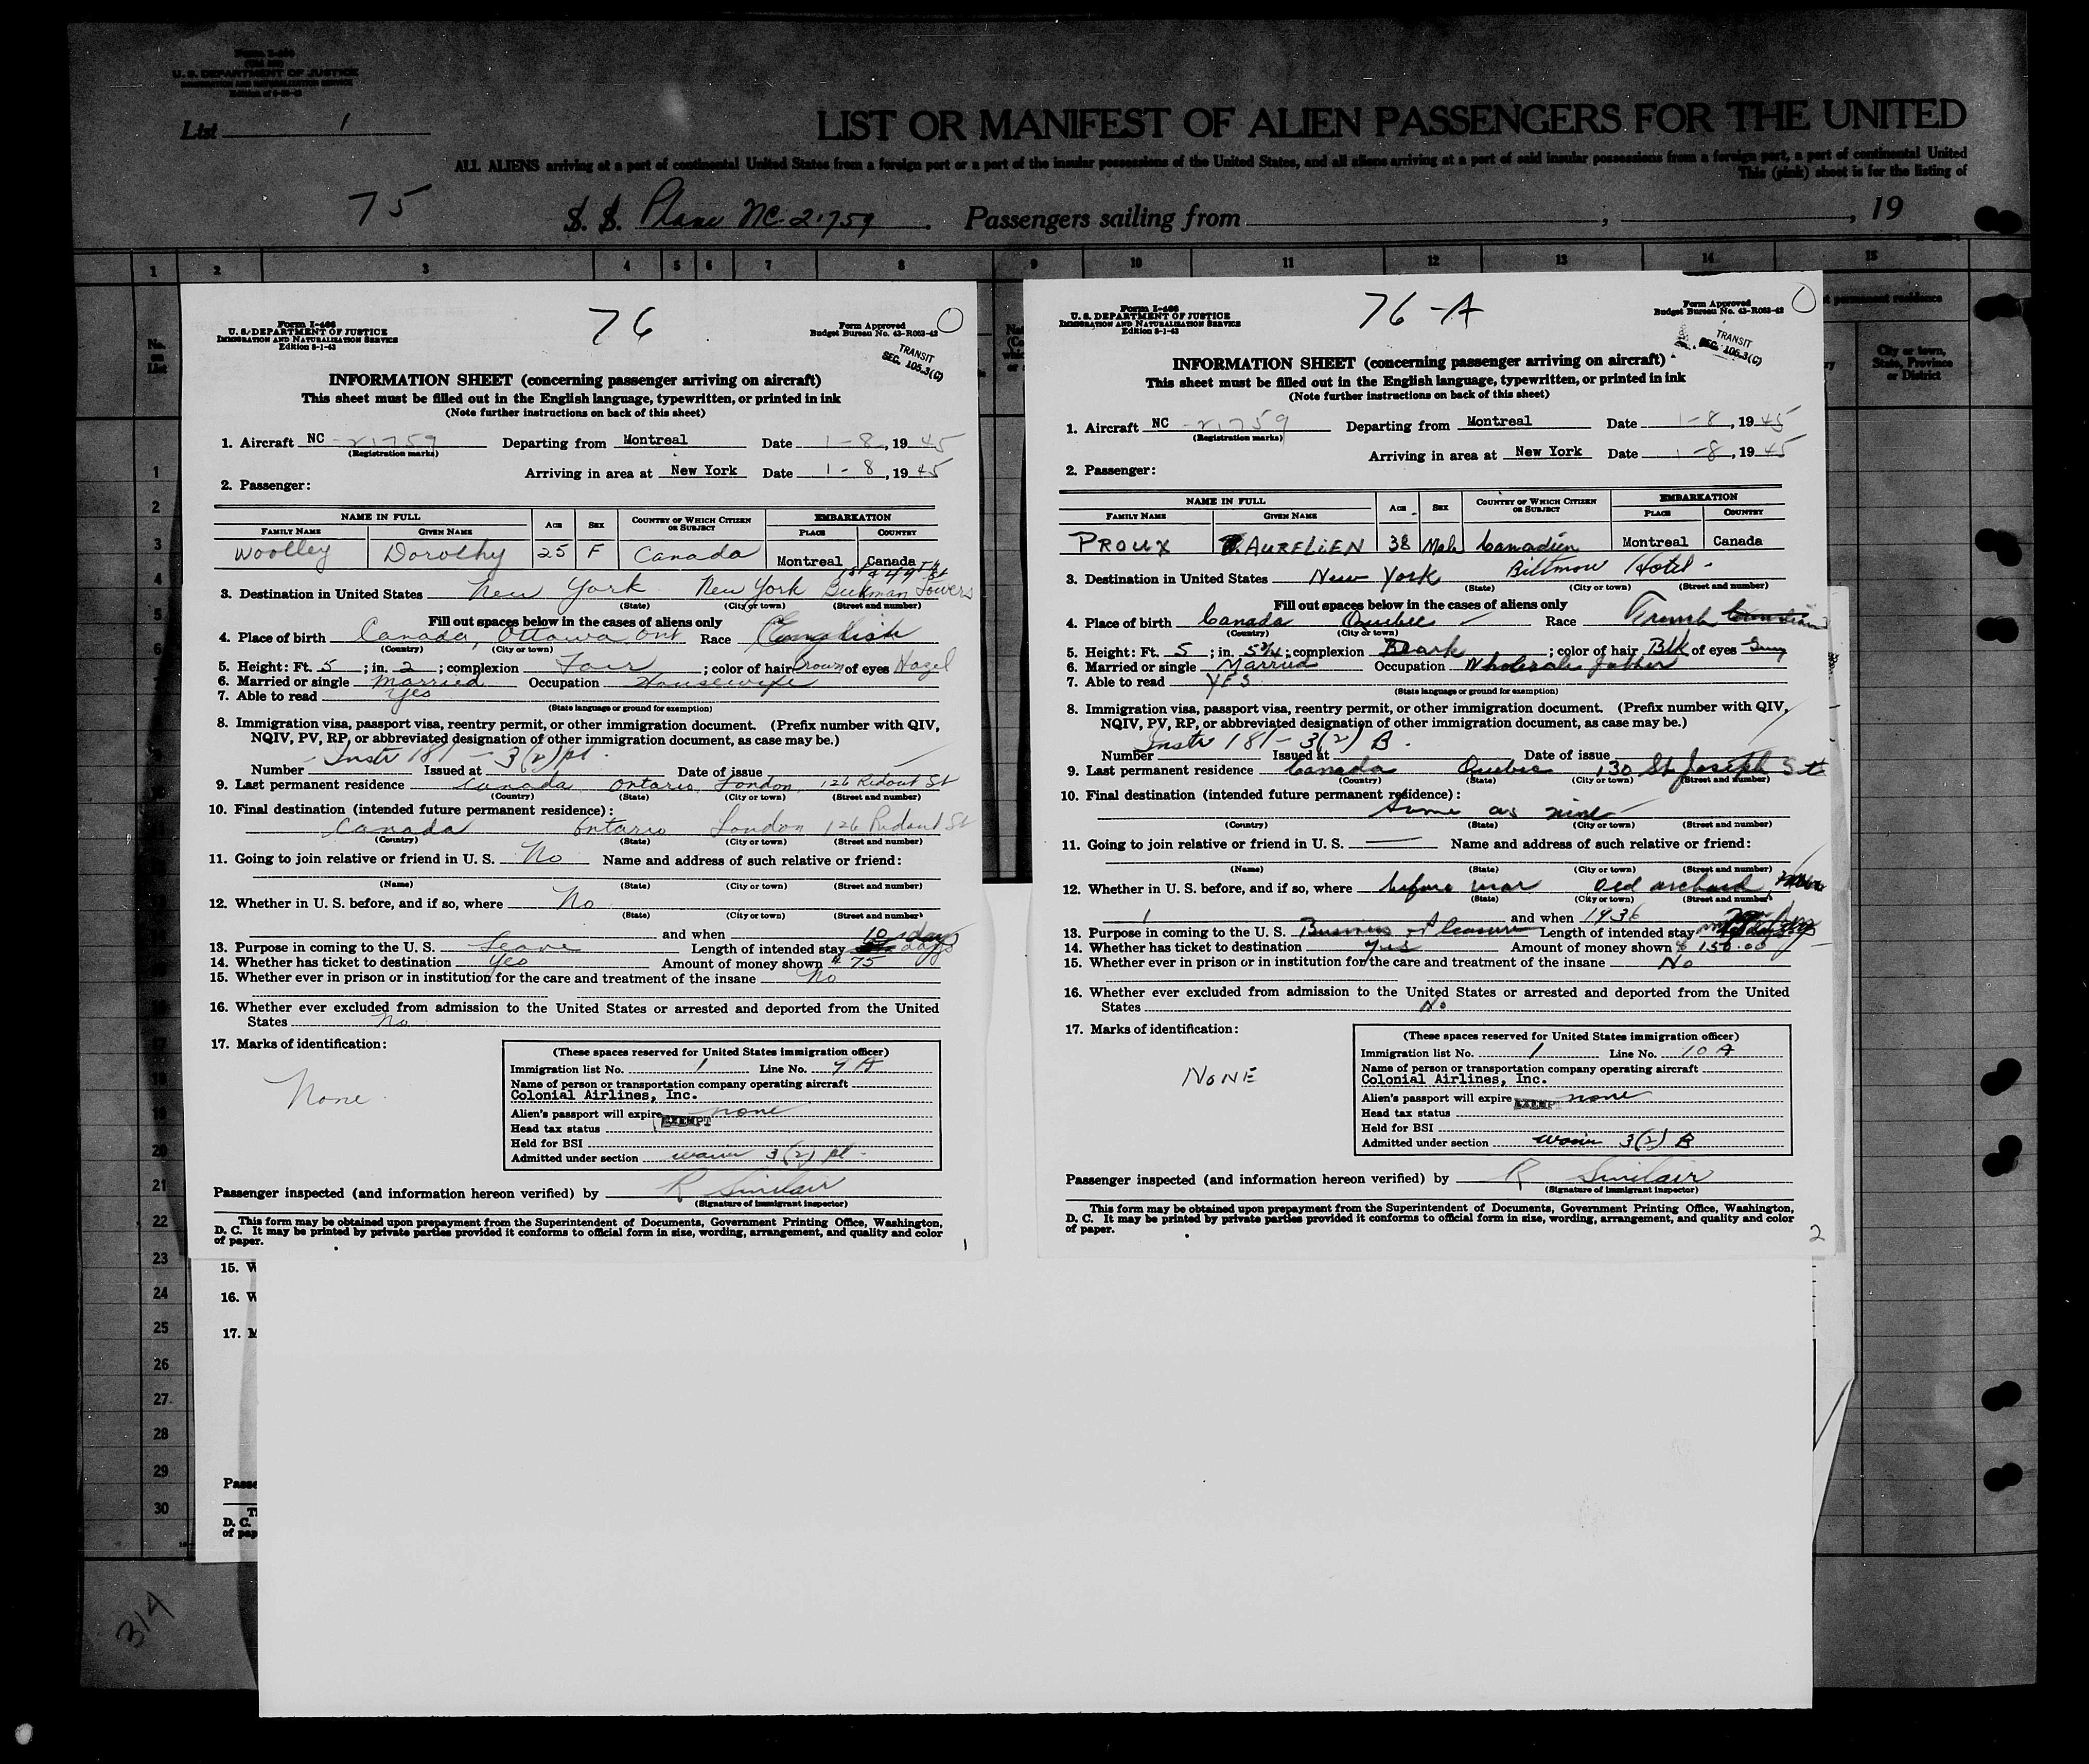 Form I-466
U. S. DEPARTMENT OF JUSTICE
IMMIGRATION AND NATURALIZATION SERVICE
List 1
LIST OR MANIFEST OF ALIEN PASSENGERS FOR THE UNITED
ALL ALIENS arriving at a port of continental United States from a foreign port or a port of the insular possessions of the United States, and all aliens arriving at a port of said insular possessions from a foreign port, a port of continental United
This (pink) sheet is for the listing of
75
S. S. Plane NC 21759. Passengers sailing from , , 19
1 2 3 4 5 6 7 8 9 10 11 12 13 14 15
No. on List
permanent residence
City or town, State, Province or District
76
Form I-466
U. S. DEPARTMENT OF JUSTICE
IMMIGRATION AND NATURALIZATION SERVICE
Edition 8-1-43
Form Approved
Budget Bureau No. 43-R063-42
TRANSIT
SEC. 105.3(C)
INFORMATION SHEET (concerning passenger arriving on aircraft)
This sheet must be filled out in the English language, typewritten, or printed in ink
(Note further instructions on back of this sheet)
1. Aircraft NC -21759 Departing from Montreal Date 1-8, 19 45
(Registration marks)
Arriving in area at New York Date 1-8, 19 45
2. Passenger:
NAME IN FULL AGE SEX COUNTRY OF WHICH CITIZEN OR SUBJECT EMBARKATION
FAMILY NAME GIVEN NAME PLACE COUNTRY
Woolley Dorothy 25 F Canada Montreal Canada
1st & 49th St
3. Destination in United States New York New York Beekman Towers
(State) (City or town) (Street and number)
Fill out spaces below in the cases of aliens only
4. Place of birth Canada, Ottawa Ont Race English
(Country) (City or town)
5. Height: Ft. 5; in. 2; complexion Fair; color of hair Brown of eyes Hazel
6. Married or single Married Occupation Housewife
7. Able to read Yes
(State language or ground for exemption)
8. Immigration visa, passport visa, reentry permit, or other immigration document. (Prefix number with QIV,
NQIV, PV, RP, or abbreviated designation of other immigration document, as case may be.)
Instr 181 - 3(2) pl.
Number Issued at Date of issue
9. Last permanent residence Canada Ontario London 126 Ridout St
(Country) (State) (City or town) (Street and number)
10. Final destination (intended future permanent residence):
Canada Ontario London 126 Ridout St
(Country) (State) (City or town) (Street and number)
11. Going to join relative or friend in U. S. No Name and address of such relative or friend:
(Name) (State) (City or town) (Street and number)
12. Whether in U. S. before, and if so, where No
(State) (City or town) (Street and number)
and when
13. Purpose in coming to the U. S. Leave Length of intended stay 10 days
14. Whether has ticket to destination Yes Amount of money shown $75
15. Whether ever in prison or in institution for the care and treatment of the insane No
16. Whether ever excluded from admission to the United States or arrested and deported from the United
States No
17. Marks of identification:
None
(These spaces reserved for United States immigration officer)
Immigration list No. 1 Line No. 9 A
Name of person or transportation company operating aircraft
Colonial Airlines, Inc.
Alien's passport will expire none
Head tax status EXEMPT
Held for BSI
Admitted under section waiver 3(2) pl.
Passenger inspected (and information hereon verified) by R Sinclair
(Signature of immigrant inspector)
This form may be obtained upon prepayment from the Superintendent of Documents, Government Printing Office, Washington,
D. C. It may be printed by private parties provided it conforms to official form in size, wording, arrangement, and quality and color
of paper.
1
76-A
Form I-466
U. S. DEPARTMENT OF JUSTICE
IMMIGRATION AND NATURALIZATION SERVICE
Edition 8-1-43
Form Approved
Budget Bureau No. 43-R063-42
TRANSIT
SEC. 105.3(C)
INFORMATION SHEET (concerning passenger arriving on aircraft)
This sheet must be filled out in the English language, typewritten, or printed in ink
(Note further instructions on back of this sheet)
1. Aircraft NC -21759 Departing from Montreal Date 1-8, 19 45
(Registration marks)
Arriving in area at New York Date 1-8, 19 45
2. Passenger:
NAME IN FULL AGE SEX COUNTRY OF WHICH CITIZEN OR SUBJECT EMBARKATION
FAMILY NAME GIVEN NAME PLACE COUNTRY
PROUX AURELIEN 38 Male Canadien Montreal Canada
3. Destination in United States New York Biltmow Hotel
(State) (City or town) (Street and number)
Fill out spaces below in the cases of aliens only
4. Place of birth Canada Quebec Race French
(Country) (City or town)
5. Height: Ft. 5; in. 5 3/4; complexion Dark; color of hair Blk of eyes Grey
6. Married or single Married Occupation Wholesale Jobber
7. Able to read YES
(State language or ground for exemption)
8. Immigration visa, passport visa, reentry permit, or other immigration document. (Prefix number with QIV,
NQIV, PV, RP, or abbreviated designation of other immigration document, as case may be.)
Instr 181 - 3(2) B.
Number Issued at Date of issue
9. Last permanent residence Canada Quebec 130 St Joseph St
(Country) (State) (City or town) (Street and number)
10. Final destination (intended future permanent residence):
Same as nine
(Country) (State) (City or town) (Street and number)
11. Going to join relative or friend in U. S. — Name and address of such relative or friend:
(Name) (State) (City or town) (Street and number)
12. Whether in U. S. before, and if so, where before war Old orchard, Maine
(State) (City or town) (Street and number)
1 and when 1936
13. Purpose in coming to the U. S. Business Pleasure Length of intended stay
14. Whether has ticket to destination yes Amount of money shown $150.00
15. Whether ever in prison or in institution for the care and treatment of the insane No
16. Whether ever excluded from admission to the United States or arrested and deported from the United
States No
17. Marks of identification:
NONE
(These spaces reserved for United States immigration officer)
Immigration list No. 1 Line No. 10 A
Name of person or transportation company operating aircraft
Colonial Airlines, Inc.
Alien's passport will expire none
EXEMPT
Head tax status
Held for BSI
Admitted under section waiver 3(2) B
Passenger inspected (and information hereon verified) by R Sinclair
(Signature of immigrant inspector)
This form may be obtained upon prepayment from the Superintendent of Documents, Government Printing Office, Washington,
D. C. It may be printed by private parties provided it conforms to official form in size, wording, arrangement, and quality and color
of paper.
2
1
2
3
4
5
6
9
14
17
18
19
20
21
22
23
24
25
26
27
28
29
30
15. W
16. W
17. M
Passe
D. C.
of pap
314